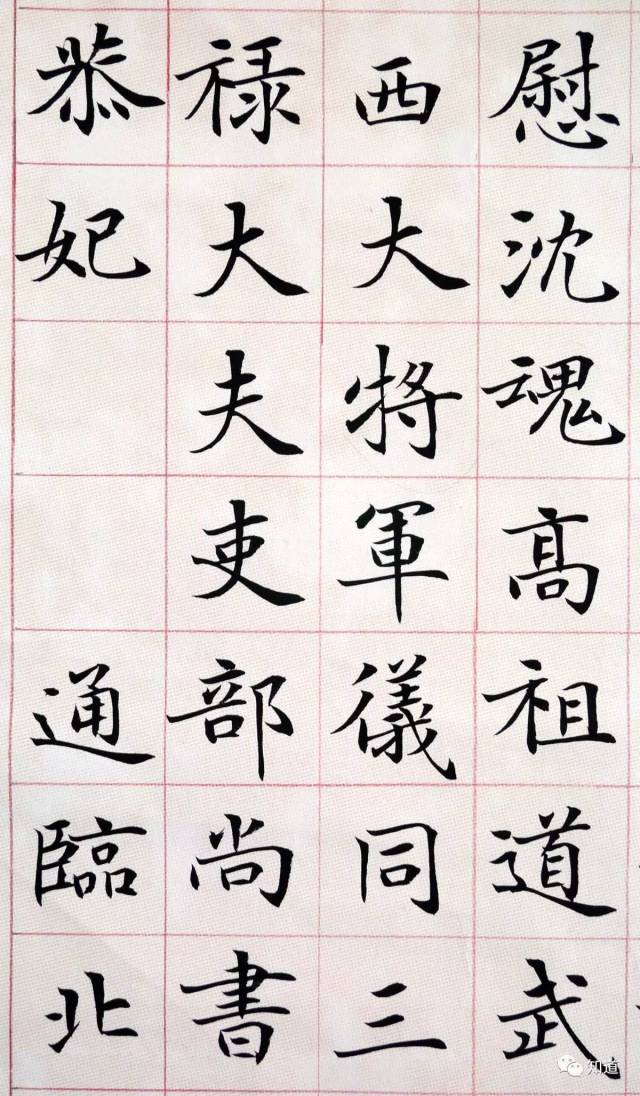 慰沈魂高祖道武
西大將軍儀同三
祿大夫吏部尚書
恭妃
通臨北
知道